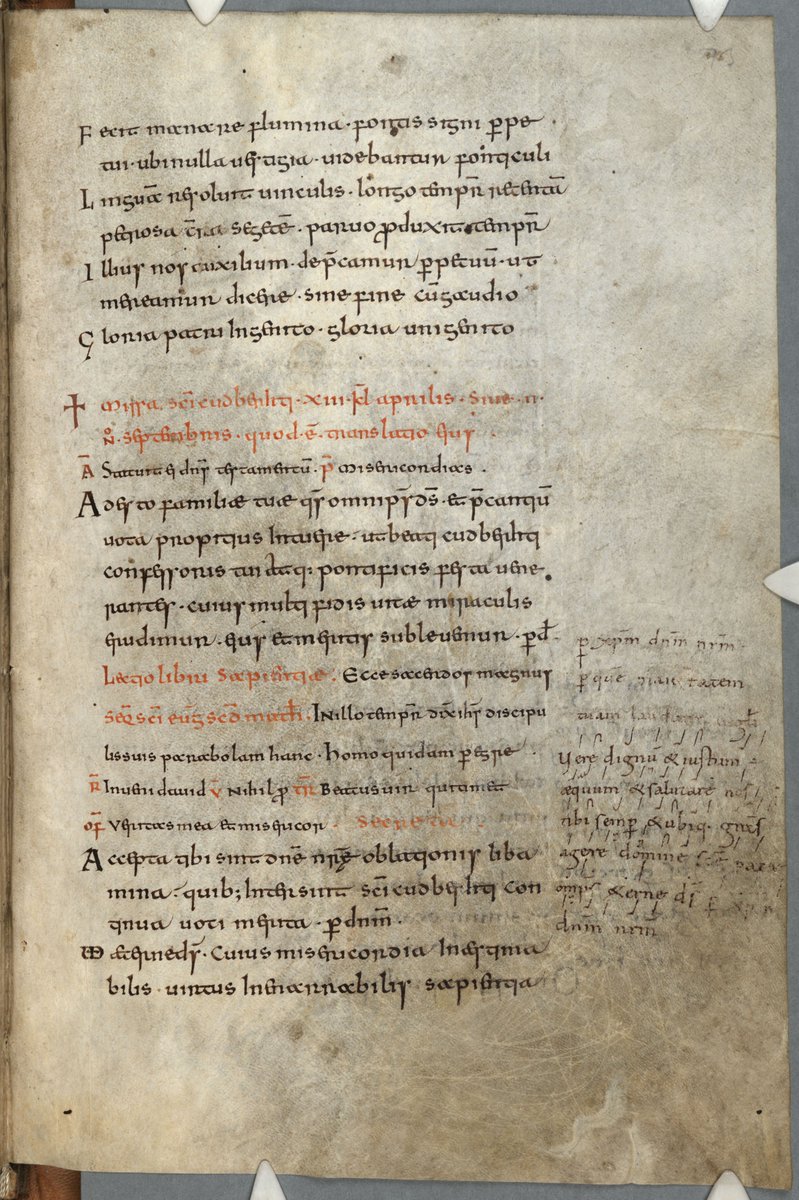 Fecit manare flumina · fontis signi ꝑpe
tui · ubi nulla uestigia · uidebantur fonticuli
Linguā resoluit uinculis · longo tempr̄ retentā
perosa t̄ra segetē · paruo ꝓduxit tempr̄
Illius nos auxilium · dep̄camur ꝑpetuū · ut
mereamur dicere · sine fine cū gaudio
Gloria patri Ingenito · gloria unigenito
† Missa · sc̄i cudberhti · XIII · kl̄ aprilis · siue · II ·
n̄ · septembris · quod ē · translatio eius ·
ā Statuit ei dn̄s testamentū · p̄ Misericordias ·
Adesto familiæ tuæ qs̄ omnip̄s d̄s · et p̄cantiū
uota propitius Intuere · ut beati cudberhti
confessoris tui atq: pontificis festa uene
rantes · cuius multi fidis uitæ miraculis
erudimur · eius et meritis subleuemur · ꝑ d
Lectio libri sapientiæ · Ecce sacerdos magnus
Seq̄ sc̄i euḡ sc̄d math̄ · In illo tempr̄ dix̄ ih̄s discipu
lis suis parabolam hanc · homo quidam peregre ·
r̄ Inueni dauid v̄ Nihil ꝓ tr̄ Beatus uir qui timet
of̄ Veritas mea et misericor · Secreta ·
Accepta tibi sint dn̄e nr̄ę oblationis liba
mina · quib; Intersint sc̄i cudberhti con
tinua uoti merita · ꝑ dn̄m ·
VD æterne ds̄ · Cuius misericordia Inæstima
bilis · uirtus Inenarrabilis sapientia
ꝑ xp̄m dn̄m nr̄m
ꝑ quē maiestatem
tuam laudant
Vere dignū & iustum
æquum & salutare nos
tibi semꝑ & ubiq; gr̄as
agere domine sc̄e
omps̄ æterne ds̄ ꝑ xp̄m
dn̄m nr̄m